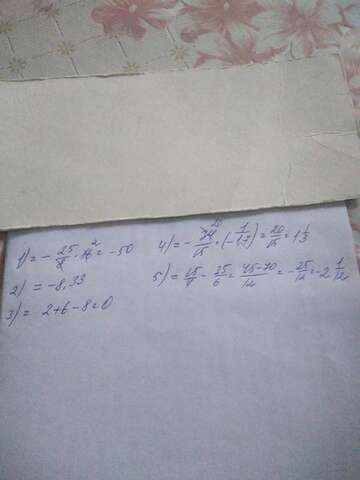 1) = - 25/8 · 16² = -50
2) = -8,33
3) = 2+6-8=0
4) = - /15 · (- 1/17) = 20/15 = 1 1/3
5) = 15/4 - 35/6 = 45-70/12 = - 25/12 = -2 1/12